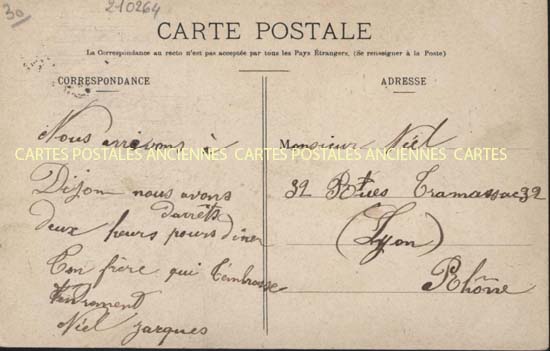 30
210264
CARTE POSTALE
La Correspondance au recto n'est pas acceptée par tous les Pays Étrangers. (Se renseigner à la Poste)
CORRESPONDANCE
Nous arrivons à
Dijon nous avons
d'arrêts
deux heurs pours dîner
Ton frère qui t'embrasse
tendrement
Niel Jarques
ADRESSE
Monsieur Niél
32 Rues Tramassac 32
(Lyon)
Rhône
CARTES POSTALES ANCIENNES CARTES POSTALES ANCIENNES CARTES